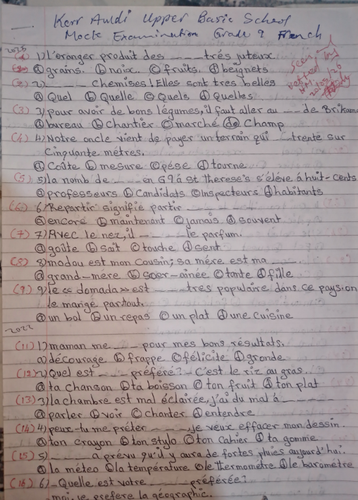 Kerr Auldi Upper Basic School
Mock Examination Grade 9 French
1) L'oranger produit des ___ très juteux
a) grains. b) noix c) fruits. d) beignets
2) ___ Chemises! Elles sont très belles
a) Quel b) Quelle c) Quels d) Quelles
(3) 3) pour avoir de bons légumes, il faut aller au ___ de Brikama
a) bureau b) Chantier c) marché d) Champ
4) Notre oncle vient de payer un terrain qui ___ trente sur
Cinquante mètres.
a) Coûte b) mesure c) pèse d) tourne
(5) 5) la nomb de ___ en G9 à st therese's s'élève à huit-cents
a) professeurs b) Candidats c) Inspecteurs d) habitants
(6) 6) Repartir signifie partir ___
a) encore b) maintenant c) jamais d) souvent
(7) 7) Avec le nez, il ___ le parfum.
a) goûte b) sait c) touche d) sent
(8) 8) madou est mon Cousin; sa mère est ma ___
a) grand-mère b) soer-ainée c) tante d) fille
(9) 9) le «domada» est ___ très populaire dans ce pays, on
le mange partout.
a) un bol b) un repas c) un plat d) une cuisine
2022
(11) 1) maman me ___ pour mes bons résultats.
a) décourage b) frappe c) félicite d) gronde
(12) 2) Quel est ___ préféré? - C'est le riz au gras.
a) ta chanson b) ta boisson c) ton fruit d) ton plat
(13) 3) la chambre est mal éclairée, j'ai du mal à ___
a) parler b) voir c) chanter d) entendre
(14) 4) peux-tu me prêter ___ je veux effacer mon dessin
a) ton crayon b) ton stylo c) ton cahier d) ta gomme
(15) 5) ___ a prévu qu'il y aura de fortes pluies aujourd'hui.
a) la météo b) la température c) le thermomètre d) le baromètre
(16) 6) - Quelle est votre ___ préférée?
- moi, je préfère la géographie.